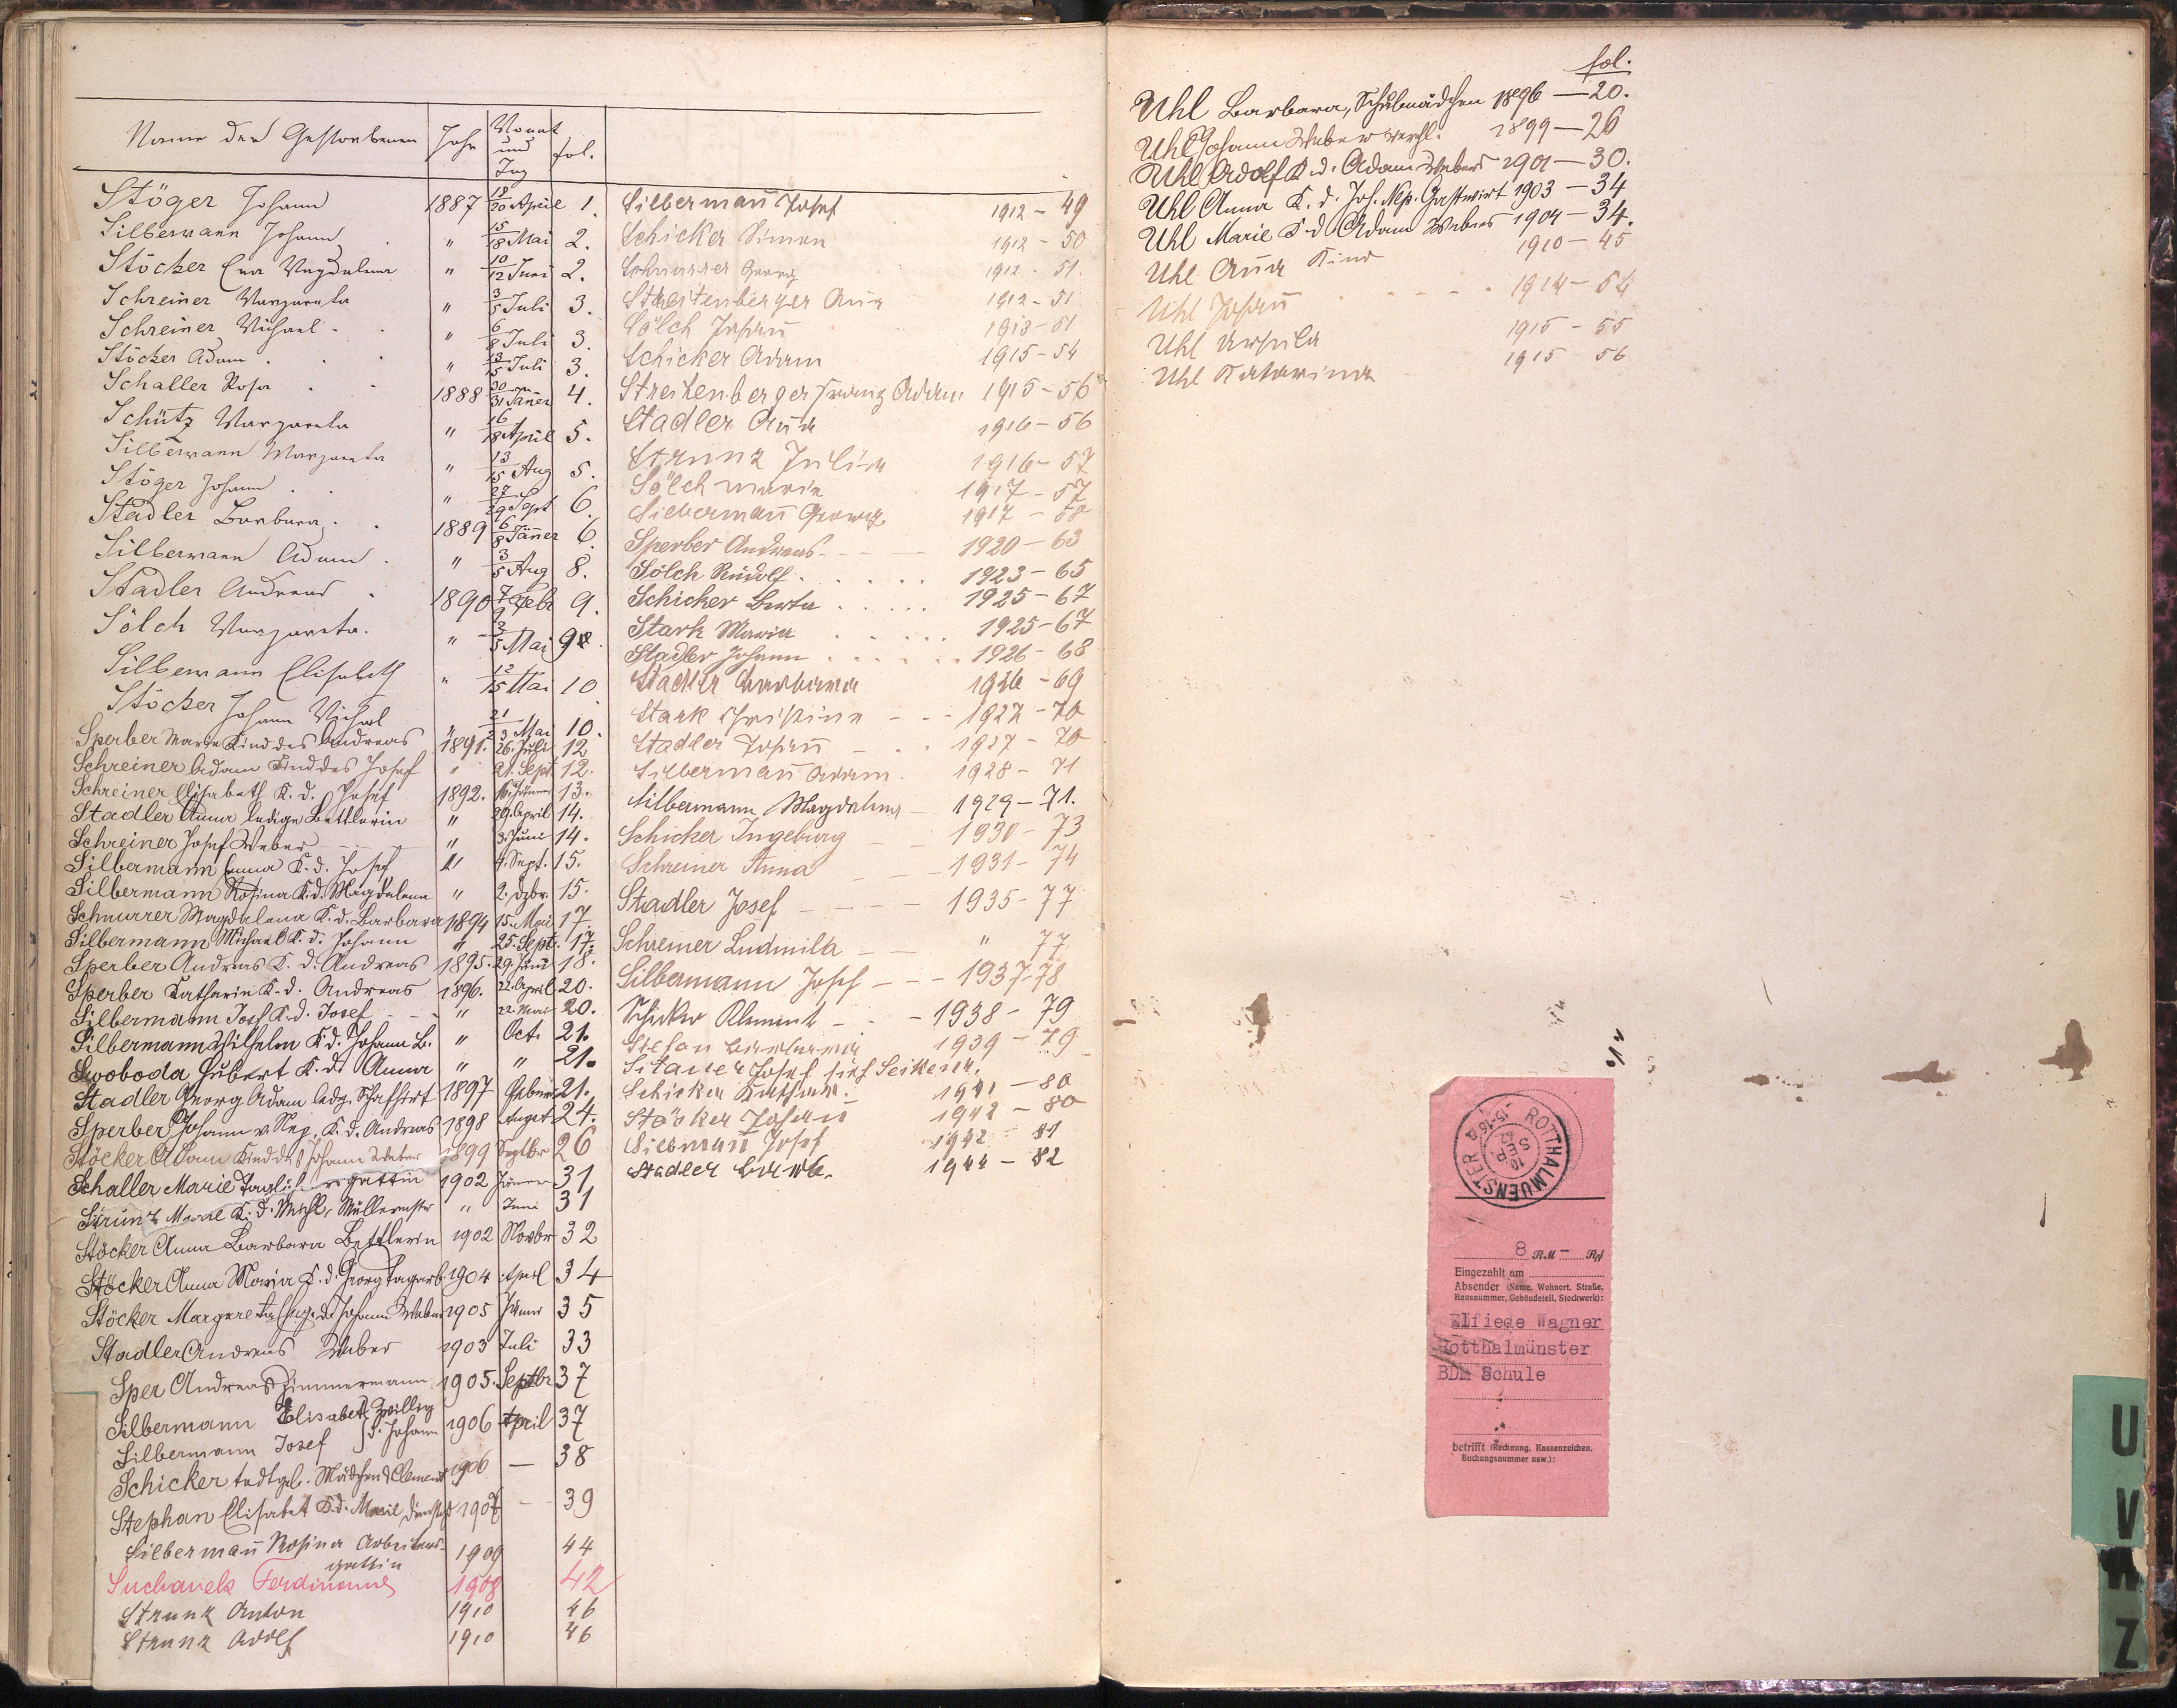 Name der Gestorbenen Jahr Monat und Tag fol.
Stöger Johann 1887 18/20 April 1.
Silbermann Johann " 15/18 Mai 2.
Stöcker Eva Magdalena " 10/12 Juni 2.
Schreiner Margareta " 3/5 Juli 3.
Schreiner Michael " 6/8 Juli 3.
Stöcker Adam " 13/15 Juli 3.
Schaller Rosa 1888 30/31 Jäner 4.
Schütz Margareta " 16/18 April 5.
Silbermann Margareta " 13/15 Aug 5.
Stöger Johann " 27/29 Sept 6.
Stadler Barbara 1889 6/8 Jänner 6.
Silbermann Adam " 3/5 Aug 8.
Stadler Andreas 1890 7/9 Febr 9.
Sölch Margareta " 3/5 Mai 9
Silbermann Elisabeth " 12/15 Mai 10
Stöcker Johann Michael " 21/23 Mai 10.
Sperber Marie Kind des Andreas 1891. 26. Juli 12
Schreiner Adam Kind des Josef " 21. Sept. 12.
Schreiner Elisabeth K. d. Josef 1892. 16. Jänner 13.
Stadler Anna ledige Bettlerin " 29. April 14.
Schreiner Josef Weber " 3. Juni 14.
Silbermann Emma K. d. Josef " 4. Sept. 15.
Silbermann Rosina K. d. Magdalena " 2. Dzbr. 15.
Schnurrer Magdalena K. d. Barbara 1894 15. Mai 17.
Silbermann Michael K. d. Johann " 25. Sept. 17.
Sperber Andreas K. d. Andreas 1895. 29. Juni 18.
Sperber Katharin K. d. Andreas 1896. 22. April 20.
Silbermann Josef K. d. Josef " 22. Mai 20.
Silbermann Wilhelm K d. Johann B. " Oct. 21.
Swoboda Hubert K. d. Anna " " 21.
Stadler Georg Adam ledg. 1897 Feber 21.
Sperber Johann v. Nep. K. d. Andreas 1898 August 24.
Stöcker Adam Kind des Johann Weber 1899 Septbr 26
Schaller Marie gattin 1902 Jänner 31
Strunz Marie K. d. Michl. Müllermstr " Juni 31
Stöcker Anna Barbara Bettlerin 1902 Novbr 32
Stöcker Anna Maria K. d. Georg Tagarb. 1904 April 34
Stöcker Margareta d. Johann Weber 1905 Jänner 35
Stadler Andreas Weber 1903 Juli 33
Sper Andreas Zimmermann 1905. Septbr 37
Silbermann Elisabet Zwilling
Silbermann Josef d. Johann 1906 April 37
Schicker todtgeb. Mädchen d Clement 1906 — 38
Stephan Elisabet K. d. Marie 1907 — 39
Silbermañ Rosina Arbeiters-
gattin 1909 44
Suchanek Ferdinand 1908 42
Strunz Anton 1910 46
Strunz Adolf 1910 46
Silbermañ Josef 1912 - 49
Schicker Simon 1912 - 50
Schnurrer Georg 1912 - 51.
Streitenberger Aña 1912 - 51
Sölch Johañ 1913 - 51
Schicker Adam 1915 - 54
Streitenberger Franz Adam 1915 - 56
Stadler Aña 1916 - 56
Strunz Julia 1916 - 57
Sölch Marie 1917 - 57
Silbermañ Georg 1917 - 58
Sperber Andreas 1920 - 63
Sölch Rudolf 1923 - 65
Schicker Berta 1925 - 67
Stark Maria 1925 - 67
Stadler Johann 1926 - 68
Stadler Barbara 1926 - 69
Stark Christine 1927 - 70
Stadler Johañ 1927 - 70
Silbermañ Adam. 1928 - 71
Silbermann Magdalena 1929 - 71.
Schicker Ingeburg 1930 - 73
Schreiner Anna 1931 - 74
Stadler Josef 1935 - 77
Schreiner Ludmila " 77
Silbermann Josef 1937 - 78
Schicker Klement 1938 - 79
Stefan Barbara 1939 - 79
Sitauer Josef sieh Seiken.
Schicker Kathar. 1941 - 80
Stöcker Johañ 1942 - 80
Silbmañ Josef 1942 - 81
Stadler Barb. 1944 - 82
fol.
Uhl Barbara, Schulmädchen 1896 — 20.
Uhl Johann Weber verehl. 1899 — 26
Uhl Adolf K. d. Adam Webers 1901 — 30.
Uhl Anna K. d. Joh. Nep. Gastwirt 1903 — 34
Uhl Marie K d Adam Webers 1904 — 34.
Uhl Aña Kind 1910 - 45
Uhl Johañ 1914 - 54
Uhl Ursula 1915 - 55
Uhl Katarina 1915 56
ROTTHALMUENSTER
10 SEP 42
15-16
8 RM — Rpf
Eingezahlt am
Absender (Name, Wohnort, Straße,
Hausnummer, Gebäudeteil, Stockwerk):
Elfiede Wagner
Rotthalmünster
BDM Schule
betrifft (Rechnung, Kassenzeichen,
Buchungsnummer usw.):
U
V
W
Z